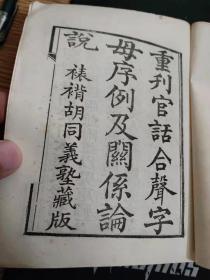 重刊官話合聲字
母序例及關係論
說
裱褙胡同義塾藏版